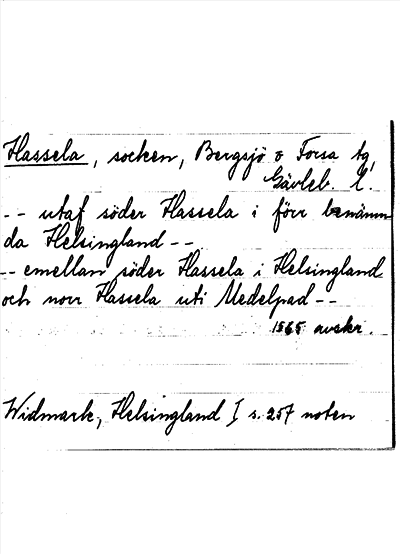 Hassela, socken, Bergsjö o Forsa tg,
Gävleb. l.
-- utaf söder Hassela i förr benämn
da Helsingland --
-- emellan söder Hassela i Helsingland
och norr Hassela uti Medelpad --
1565 avskr.
Widmark, Helsingland I s. 257 noten